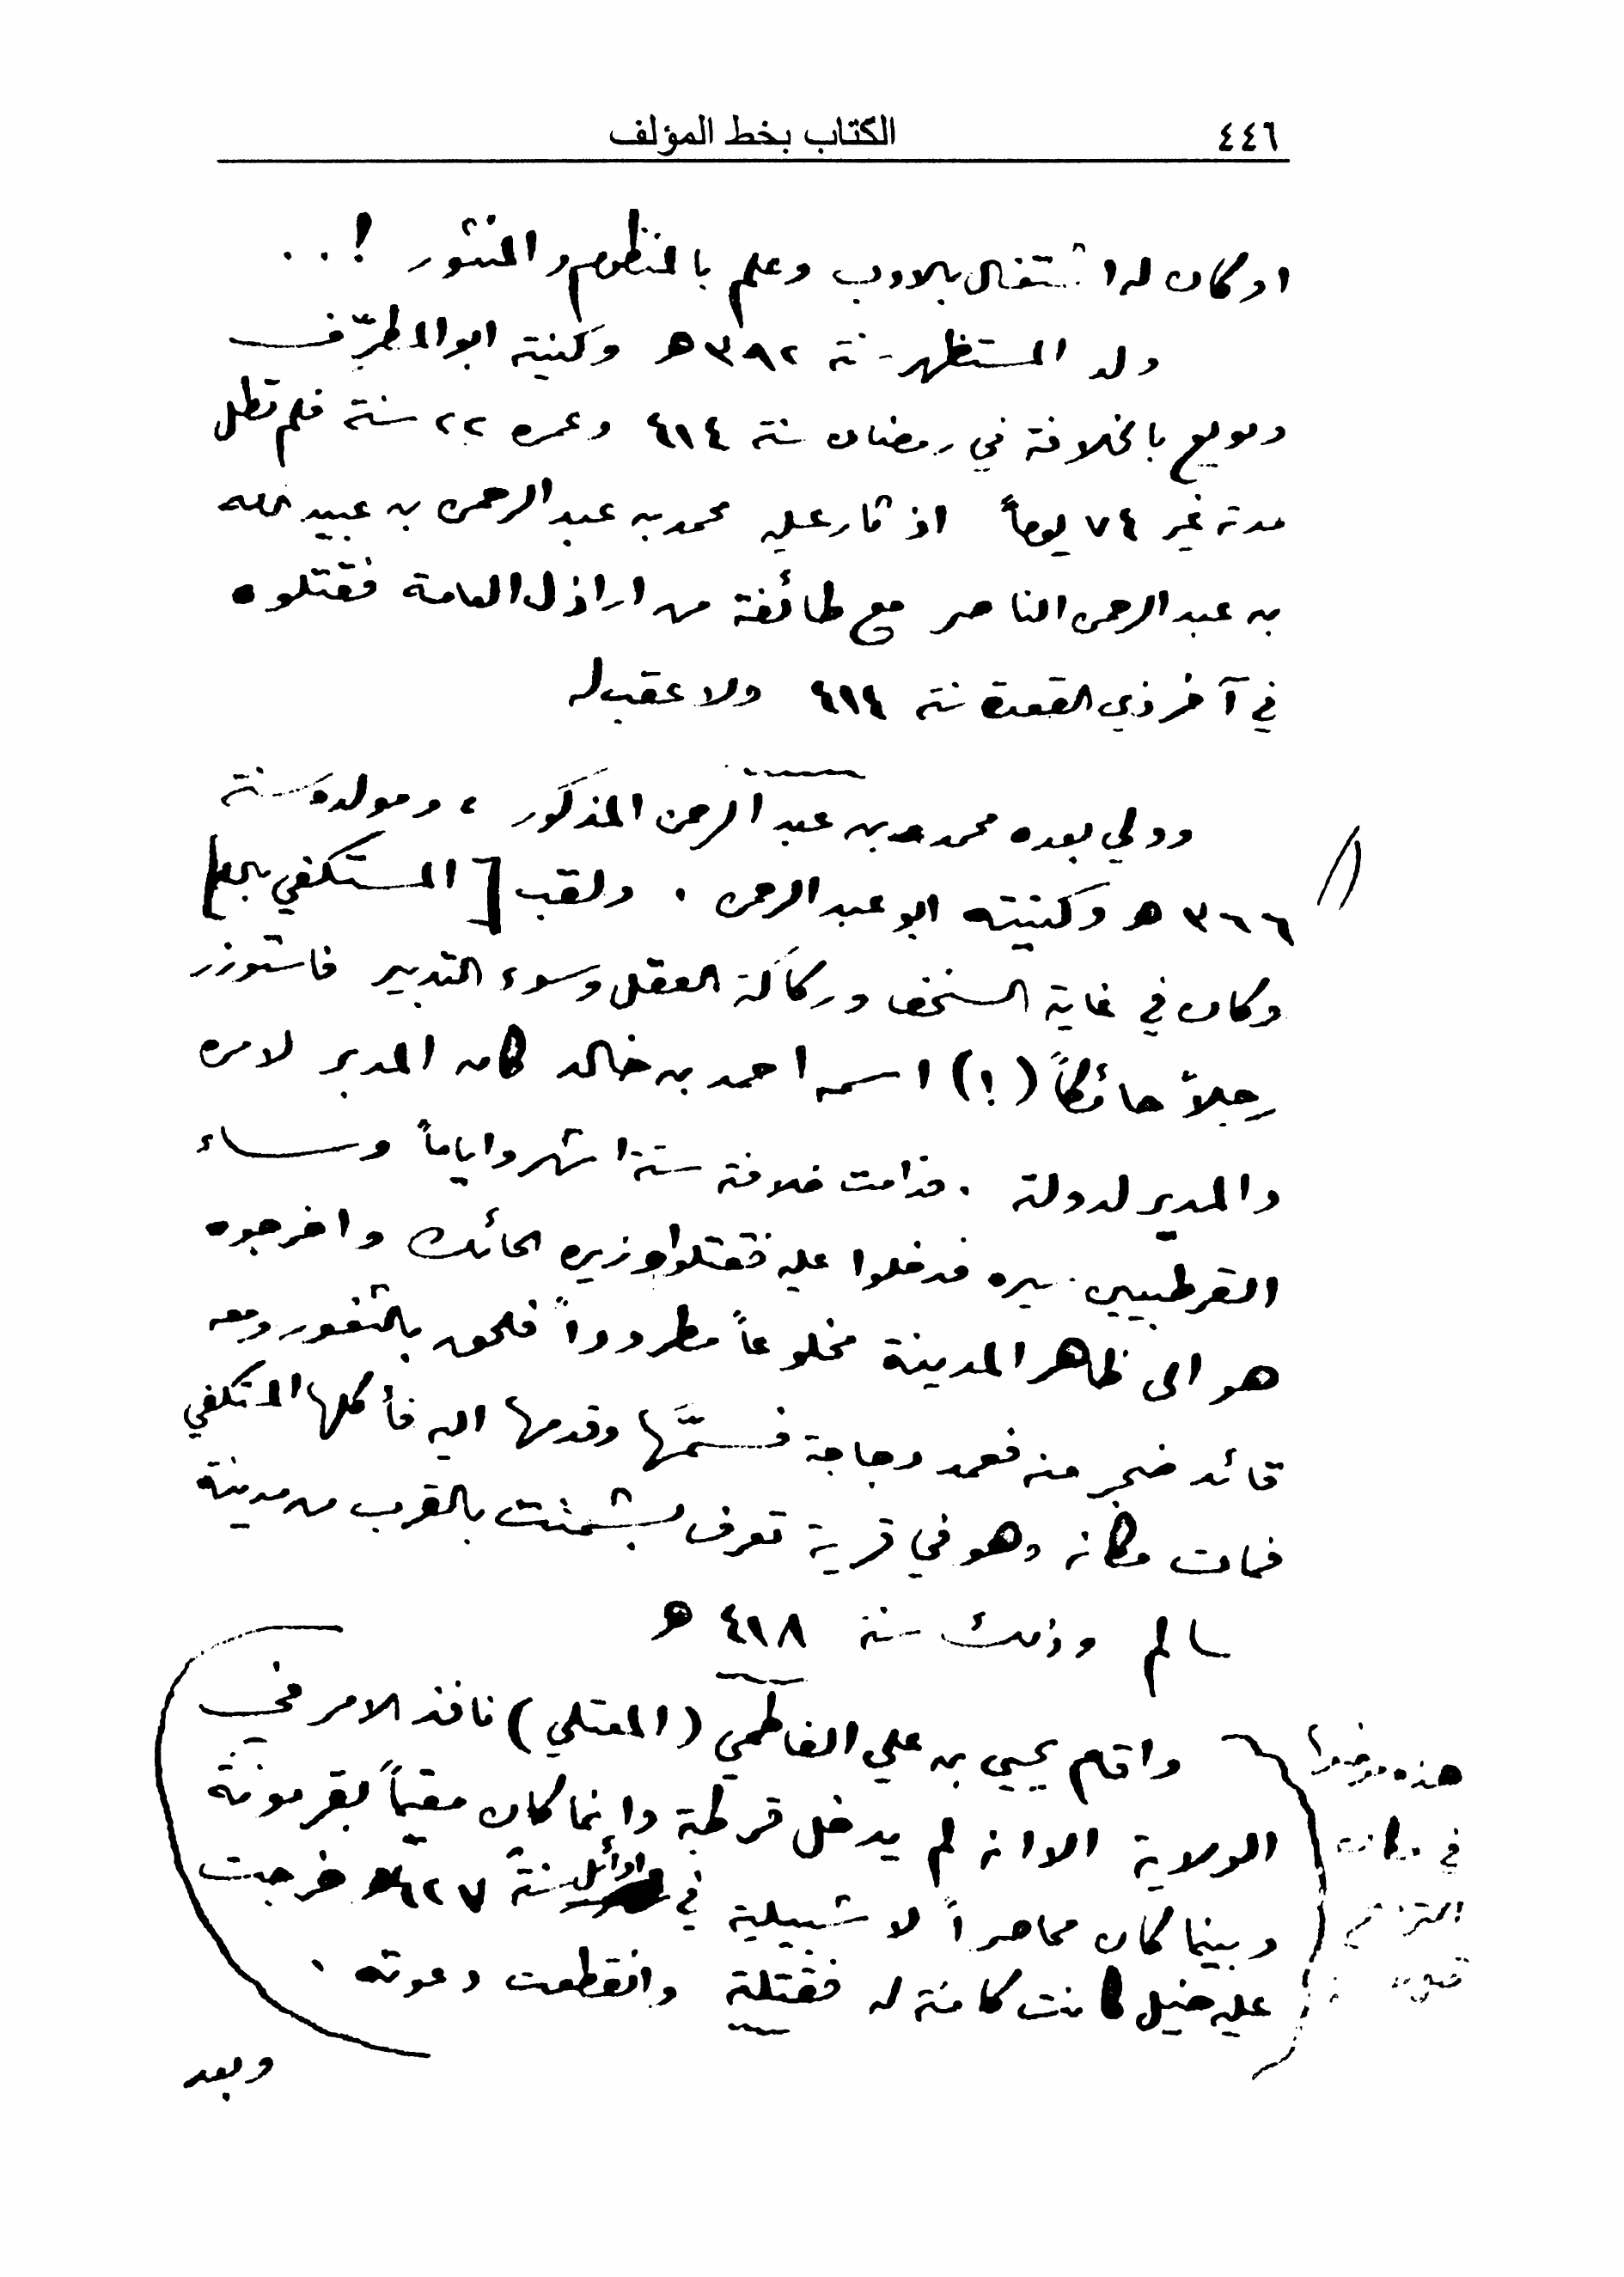 ٤٤٦
الكتاب بخط المؤلف
او كان له اشتغال بالادب وعلم بالمنظوم والمنثور !..
ولد المستظهر سنة ٣٩٢ هـ وكنيته ابو المطرّف
وبويع بالخلافة في رمضان سنة ٤١٤ وعمره ٢٢ سنة فلم تطل
مدته غير ٧٤ يوماً اذ ثار عليه محمد بن عبد الرحمن بن عبيد الله
بن عبد الرحمن الناصر مع طائفة من اراذل العامة فقتلوه
في آخر ذي القعدة سنة ٤١٤ ولا عقب له
وولي بعده محمد بن عبد الرحمن المذكور ، ومولده سنة
٣٦٦ هـ وكنيته ابو عبد الرحمن . ولقب [المستكفي بالله]
وكان في غاية السخف وركاكة العقل وسوء التدبير فاستوزر
رجلاً حائكاً (!) اسمه احمد بن خالد كان المدبر لامره
والمدير لدولته . فدامت خلافته ستة اشهر واياماً وساء
القرطبيين سيره فدخلوا عليه فقتلوا وزيره الحائك واخرجوه
هو الى ظاهر المدينة مخلوعاً مطروداً فلحق بالثغور ومعه
قائد ضجر منه فعمد دجاجة فسمَّها وقدمها اليه فأكلها المستكفي
فمات مكانه وهو في قرية تعرف بشمنت بالقرب من مدينة
سالم وذلك سنة ٤١٨ هـ
واقام يحيى بن علي الفاطمي (المعتلي) نافذ الامر في
الولاية الا انه لم يدخل قرطبة وانما كان مقيماً بقرمونة
وبينما كان محاصراً لاشبيلية في اوائل سنة ٤٢٧ هـ خرجت
عليه خيل كانت كامنة له فقتلته وانقطعت دعوته .
هذه موضعها
في
وبعد